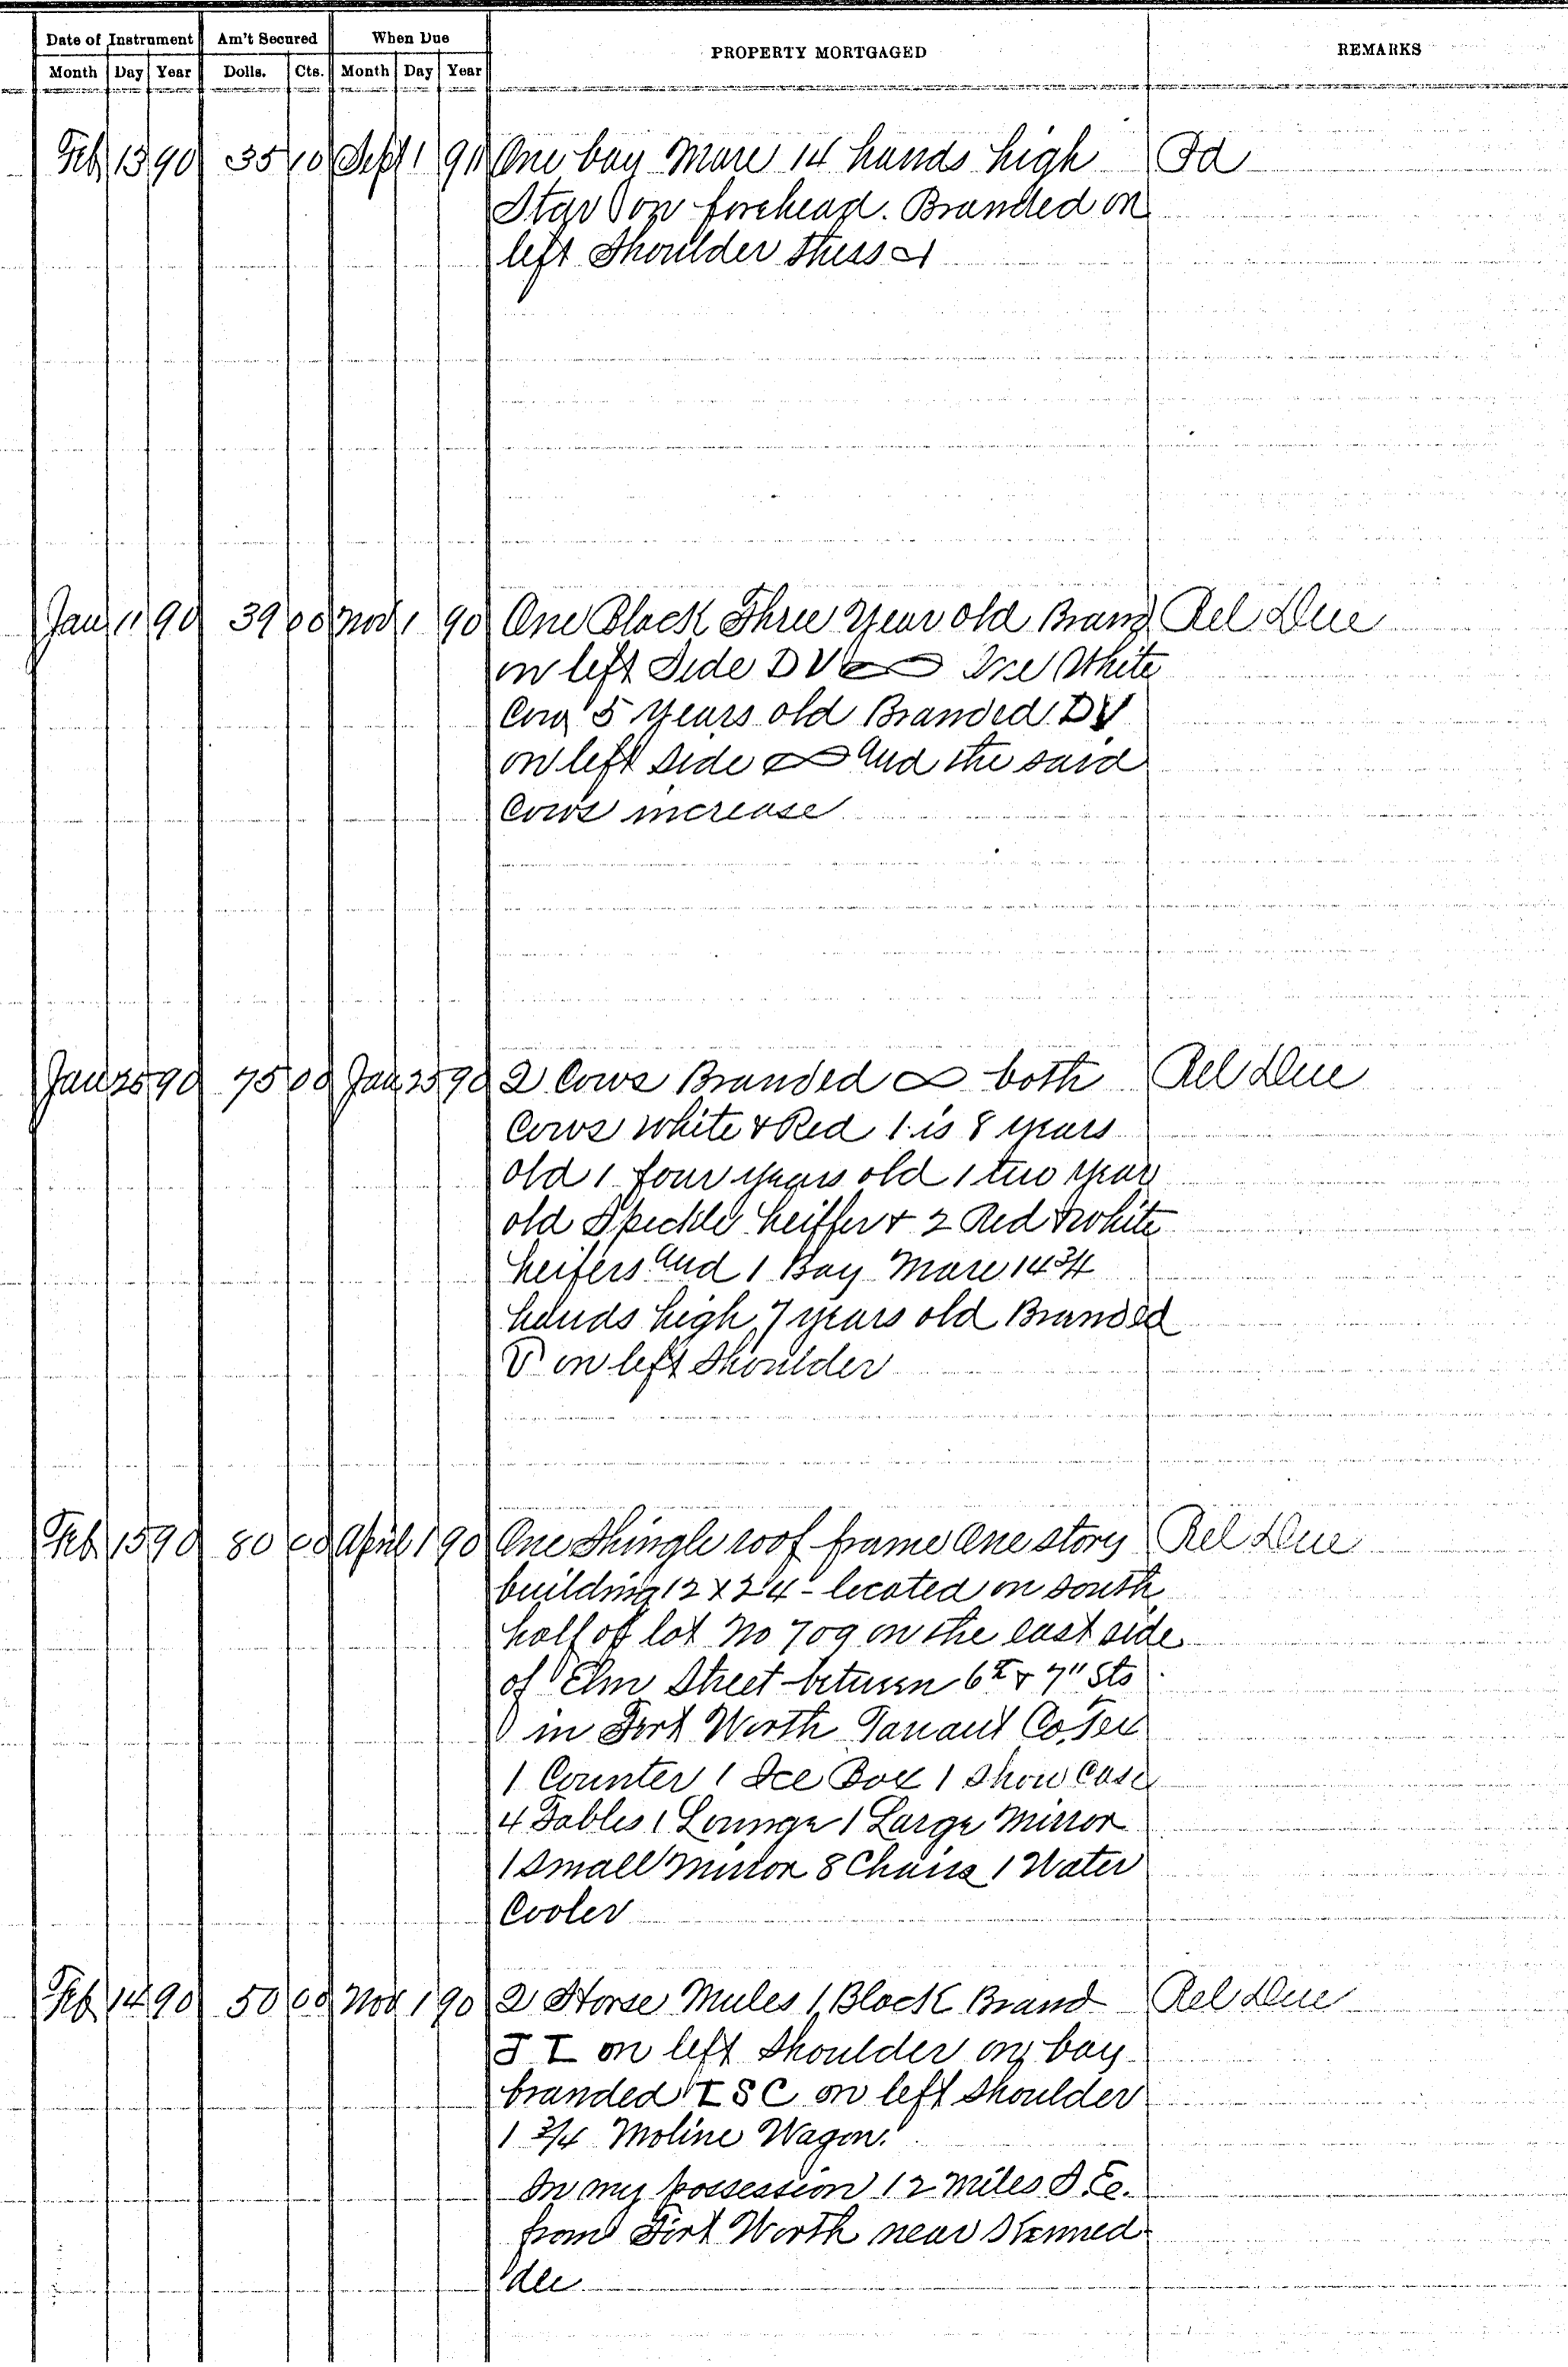 Date of Instrument Am't Secured When Due PROPERTY MORTGAGED REMARKS
Month Day Year Dolls. Cts. Month Day Year
Feb 13 90 35 10 Sept 1 90 One bay Mare 14 hands high
Star on forehead. Branded on
left Shoulder thus
Jan 11 90 39 00 Nov 1 90 One Black Three Year old Brand Rel Due
on left Side DV One White
Cow 5 Years old Branded DV
on left side and the said
Cows increase
Jan 25 90 75 00 Jan 25 90 2 Cows Branded ∞ both Rel Due
Cows White & Red 1 is 8 years
old 1 four years old 1 two year
old Speckle heiffer & 2 Red & white
heifers and 1 Bay Mare 14 3/4
hands high 7 years old Branded
V on left Shoulder
Feb 15 90 80 00 April 1 90 One Shingle roof frame One story Rel Due
building 12 x 24 - located on south
half of lot No 709 on the east side
of Elm Street between 6th & 7" Sts
in Fort Worth Tarrant Co Tex
1 Counter 1 Ice Box 1 Show Case
4 Tables 1 Lounge 1 Large Mirror
1 Small Mirror 8 Chairs 1 Water
Cooler
Feb 14 90 50 00 Nov 1 90 2 Horse Mules 1 Black Brand Rel Due
J I on left Shoulder on bay
branded I S C on left shoulder
1 3/4 Moline Wagon.
In my possession 12 Miles S E.
from Fort Worth near Kenned
dle